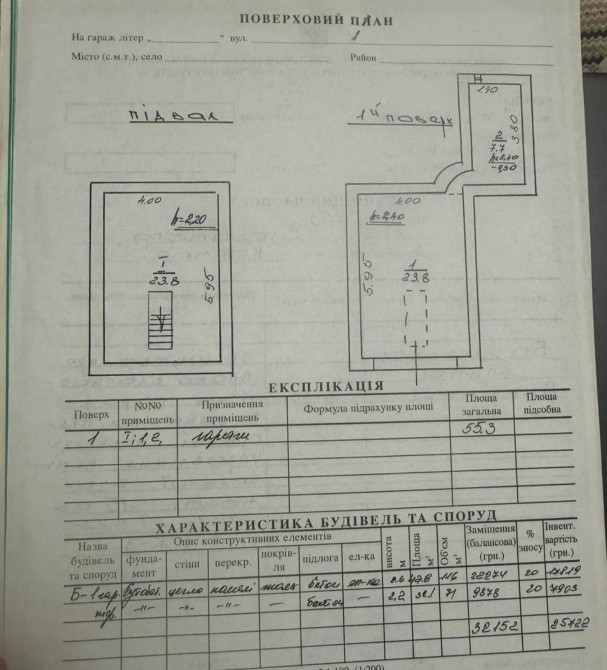 ПОВЕРХОВИЙ ПЛАН
На гараж літер „ “ вул. 1
Місто (с.м.т.), село Район
підвал
1й поверх
1.90
3.80
2
7.7
h=2.40
4.00
h=2.20
I
23.8
5.95
4.00
h=2.40
5.95
1
23.8
ЕКСПЛІКАЦІЯ
Поверх №№ приміщень Призначення приміщень Формула підрахунку площі Площа загальна Площа підсобна
1 I; 1, 2, гараж 55.3
ХАРАКТЕРИСТИКА БУДІВЕЛЬ ТА СПОРУД
Назва будівель та споруд Опис конструктивних елементів висота м Площа м² Об'єм м³ Заміщення (балансова) (грн.) % зносу Інвент. вартість (грн.)
фунда-мент стіни перекр. покрів-ля підлога ел-ка
Б-1 гар. бутобет. цегла бетон 116 22274 20 17819
підв. -"- -"- -"- — бетон — 2,2 71 9878 20 7903
32152 25722